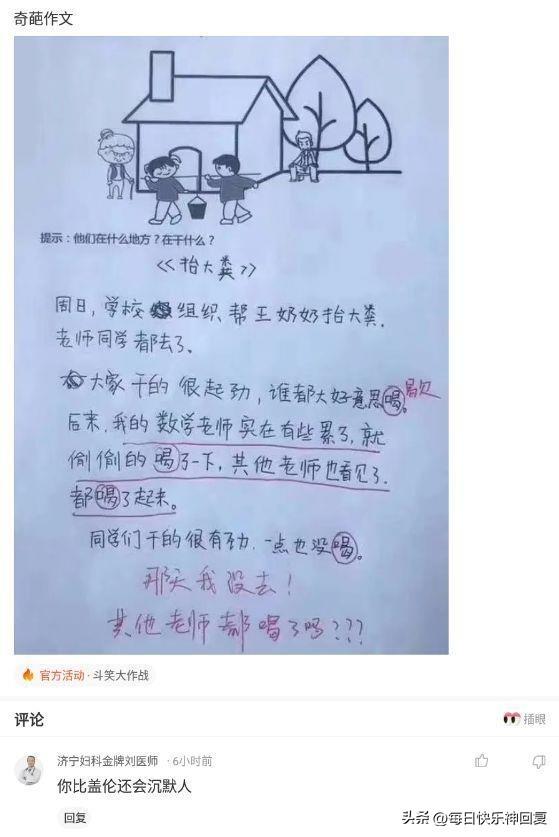 奇葩作文
提示：他们在什么地方？在干什么？
《抬大粪》
周日，学校组织、帮王奶奶抬大粪，
老师同学都去了。
大家干的很起劲，谁都大好意思喝。歇
后来，我的数学老师实在有些累了，就
偷偷的喝了一下，其他老师也看见了，
都喝了起来。
同学们干的很有劲，一点也没喝。
那天我没去！
其他老师都喝了吗？？？
官方活动·斗笑大作战
评论
插眼
济宁妇科金牌刘医师 · 6小时前
你比盖伦还会沉默人
回复
头条 @每日快乐神回复